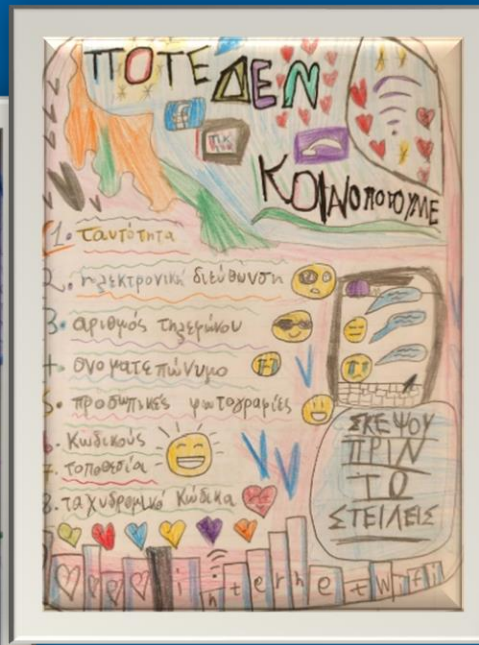 ΠΟΤΕ ΔΕΝ
ΤΙΚ
ΤΟΚ
ΚΟΙΝΟΠΟΙΟΥΜΕ
1. ταυτότητα
2. ηλεκτρονική διεύθυνση
3. αριθμός τηλεφώνου
4. ονοματεπώνυμο
5. προσωπικές φωτογραφίες
6. κωδικούς
7. τοποθεσία
8. ταχυδρομικό κώδικα
ΣΚΕΨΟΥ
ΠΡΙΝ
ΤΟ
ΣΤΕΙΛΕΙΣ
internet Wifi